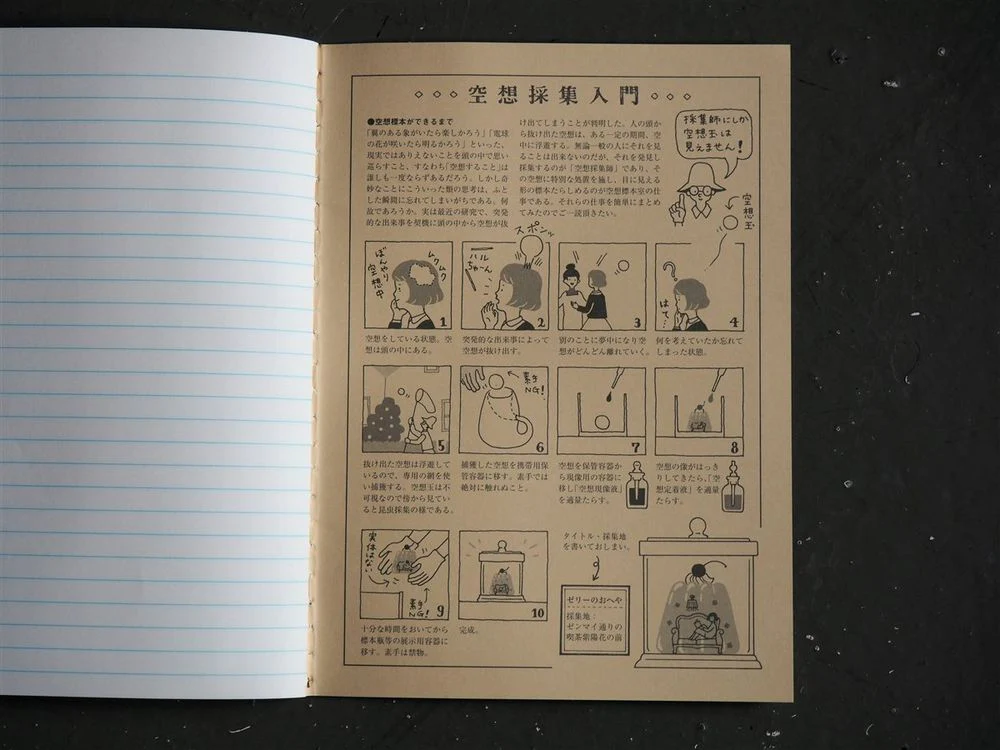 ◇◇◇空想採集入門◇◇◇
●空想標本ができるまで
「翼のある象がいたら楽しかろう」「電球
の花が咲いたら明るかろう」といった、
現実ではありえないことを頭の中で思い
巡らすこと、すなわち「空想すること」は
誰しも一度ならずあるだろう。しかし奇
妙なことにこういった類の思考は、ふと
した瞬間に忘れてしまいがちである。何
故であろうか。実は最近の研究で、突発
的な出来事を契機に頭の中から空想が抜
け出てしまうことが判明した。人の頭か
ら抜け出た空想は、ある一定の期間、空
中に浮遊する。無論一般の人にそれを見
ることは出来ないのだが、それを発見し
採集するのが「空想採集師」であり、そ
の空想に特別な処置を施し、目に見える
形の標本たらしめるのが空想標本室の仕
事である。それらの仕事を簡単にまとめ
てみたのでご一読頂きたい。
採集師にしか
空想玉は
見えません!
空想玉
ぼんやり
空想中
ムクムク
1
空想をしている状態。空
想は頭の中にある。
スポンッ
ハル
ちゃーん
2
突発的な出来事によって
空想が抜け出す。
3
別のことに夢中になり空
想がどんどん離れていく。
?
はて…
4
何を考えていたか忘れて
しまった状態。
5
抜け出た空想は浮遊して
いるので、専用の網を使
い捕獲する。空想玉は不
可視なので傍から見てい
ると昆虫採集の様である。
素手
NG!
6
捕獲した空想を携帯用保
管容器に移す。素手では
絶対に触れぬこと。
7
空想を保管容器か
ら現像用の容器に
移し「空想現像液」
を適量たらす。
8
空想の像がはっき
りしてきたら、「空
想定着液」を適量
たらす。
実体はない
素手
NG!
9
十分な時間をおいてから
標本瓶等の展示用容器に
移す。素手は禁物。
10
完成。
タイトル・採集地
を書いておしまい。
ゼリーのおへや
採集地：
ゼンマイ通りの
喫茶紫陽花の前